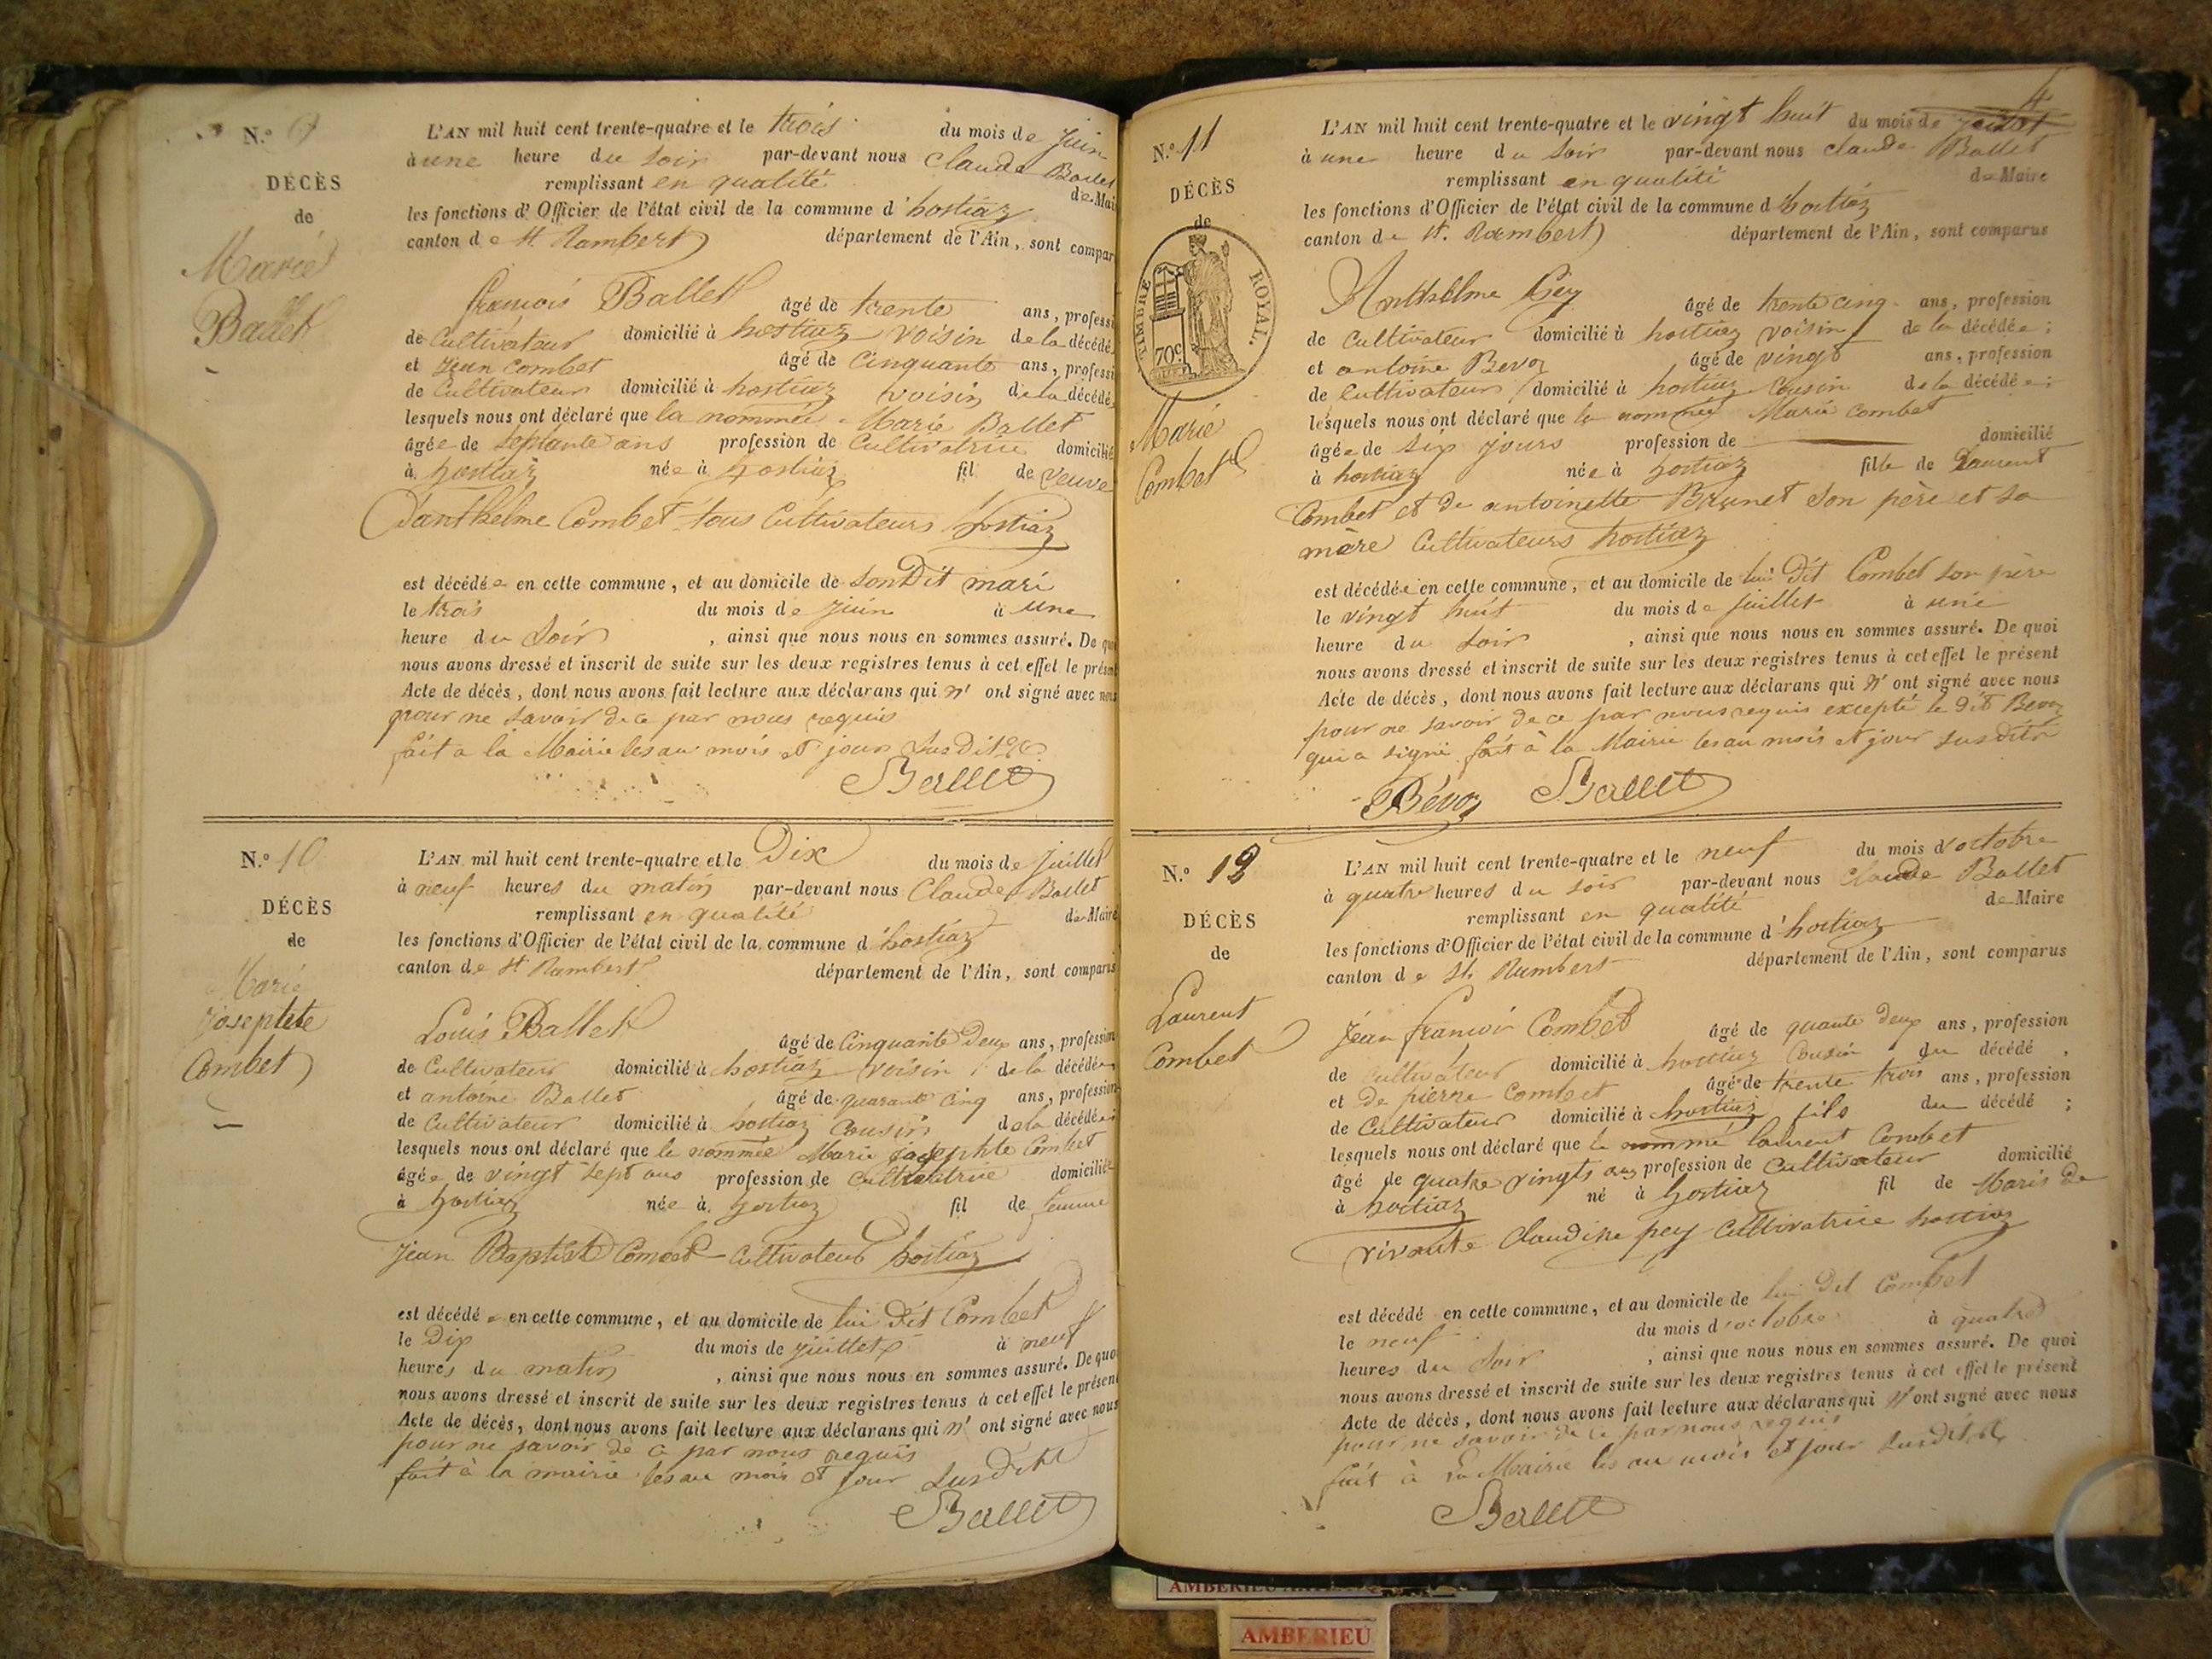 N.º 9
DÉCÈS
de
Marie
Ballet
L'AN mil huit cent trente-quatre et le trois du mois de juin
à une heure du soir par-devant nous Claude Ballet
remplissant en qualité de Mai
les fonctions d'Officier de l'état civil de la commune d'hostiaz
canton de St Rambert département de l'Ain, sont compar
françois Ballet âgé de trente ans, professi
de Cultivateur domicilié à hostiaz voisin de la décédé
et Jean Combet âgé de Cinquante ans, professi
de Cultivateur domicilié à hostiaz voisin de la décédé
lesquels nous ont déclaré que la nommée Marie Ballet
âgée de septante ans profession de Cultivatrice domicilié
à hostiaz née à hostiaz fil de veuve
D'anthelme Combet tous Cultivateurs hostiaz
est décédée en cette commune, et au domicile de son Dit mari
le trois du mois de juin à une
heure du soir, ainsi que nous nous en sommes assuré. De quoi
nous avons dressé et inscrit de suite sur les deux registres tenus à cet effet le présent
Acte de décès, dont nous avons fait lecture aux déclarans qui n'ont signé avec nous
pour ne savoir de ce par nous requis
fait a la Mairie les an mois et jour susdits
Ballet
N.º 10
DÉCÈS
de
Marie
josephte
Combet
L'AN mil huit cent trente-quatre et le Dix du mois de juillet
à neuf heures du matin par-devant nous Claude Ballet
remplissant en qualité de Maire
les fonctions d'Officier de l'état civil de la commune d'hostiaz
canton de St Rambert département de l'Ain, sont comparus
Louis Ballet âgé de Cinquante Deux ans, profession
de Cultivateur domicilié à hostiaz voisin de la décédée
et antoine Ballet âgé de quarante cinq ans, profession
de Cultivateur domicilié à hostiaz Cousin de la décédée
lesquels nous ont déclaré que la nommée Marie josephte Combet
âgée de vingt sept ans profession de Cultivatrice domiciliée
à hostiaz née à hostiaz fil de femme
Jean Baptiste Combet Cultivateur hostiaz
est décédée en cette commune, et au domicile de lui dit Combet
le Dix du mois de juillet à neuf
heures du matin, ainsi que nous nous en sommes assuré. De quoi
nous avons dressé et inscrit de suite sur les deux registres tenus à cet effet le présent
Acte de décès, dont nous avons fait lecture aux déclarans qui n'ont signé avec nous
pour ne savoir de ce par nous requis
fait à la mairie les an mois et jour susdits
Ballet
4
N.º 11
DÉCÈS
de
TIMBRE ROYAL
70c
Marie
Combet
L'AN mil huit cent trente-quatre et le vingt huit du mois de juillet
à une heure du soir par-devant nous Claude Ballet
remplissant en qualité de Maire
les fonctions d'Officier de l'état civil de la commune d'hostiaz
canton de St. Rambert département de l'Ain, sont comparus
Anthelme Pey âgé de trente cinq ans, profession
de Cultivateur domicilié à hostiaz voisin de la décédée;
et antoine Bevoz âgé de vingt ans, profession
de Cultivateur domicilié à hostiaz Cousin de la décédée;
lesquels nous ont déclaré que la nommée Marie Combet
âgée de six jours profession de domicilié
à hostiaz née à hostiaz fille de Laurent
Combet et de antoinette Brunet son père et sa
mère Cultivateurs hostiaz
est décédée en cette commune, et au domicile de lui dit Combet son père
le vingt huit du mois de juillet à une
heure du soir, ainsi que nous nous en sommes assuré. De quoi
nous avons dressé et inscrit de suite sur les deux registres tenus à cet effet le présent
Acte de décès, dont nous avons fait lecture aux déclarans qui n'ont signé avec nous
pour ne savoir de ce par nous requis excepté le dit Bevoz
qui a signé fait à la Mairie les an mois et jour susdits
Bévoz Ballet
N.º 12
DÉCÈS
de
Laurent
Combet
L'AN mil huit cent trente-quatre et le neuf du mois d'octobre
à quatre heures du soir par-devant nous Claude Ballet
remplissant en qualité de Maire
les fonctions d'Officier de l'état civil de la commune d'hostiaz
canton de St. Rambert département de l'Ain, sont comparus
Jean françois Combet âgé de quante deux ans, profession
de Cultivateur domicilié à hostiaz Cousin du décédé,
et de pierre Combet âgé de trente trois ans, profession
de Cultivateur domicilié à hostiaz fils du décédé;
lesquels nous ont déclaré que le nommé laurent Combet
âgé de quatre vingts ans profession de Cultivateur domicilié
à hostiaz né à hostiaz fil de Maris de
vivante Claudine pey Cultivatrice hostiaz
est décédé en cette commune, et au domicile de lui dit Combet
le neuf du mois d'octobre à quatre
heures du soir, ainsi que nous nous en sommes assuré. De quoi
nous avons dressé et inscrit de suite sur les deux registres tenus à cet effet le présent
Acte de décès, dont nous avons fait lecture aux déclarans qui n'ont signé avec nous
pour ne savoir de ce par nous requis
fait à La Mairie les an mois et jour susdits
Ballet
AMBERIEU
AMBERIEU